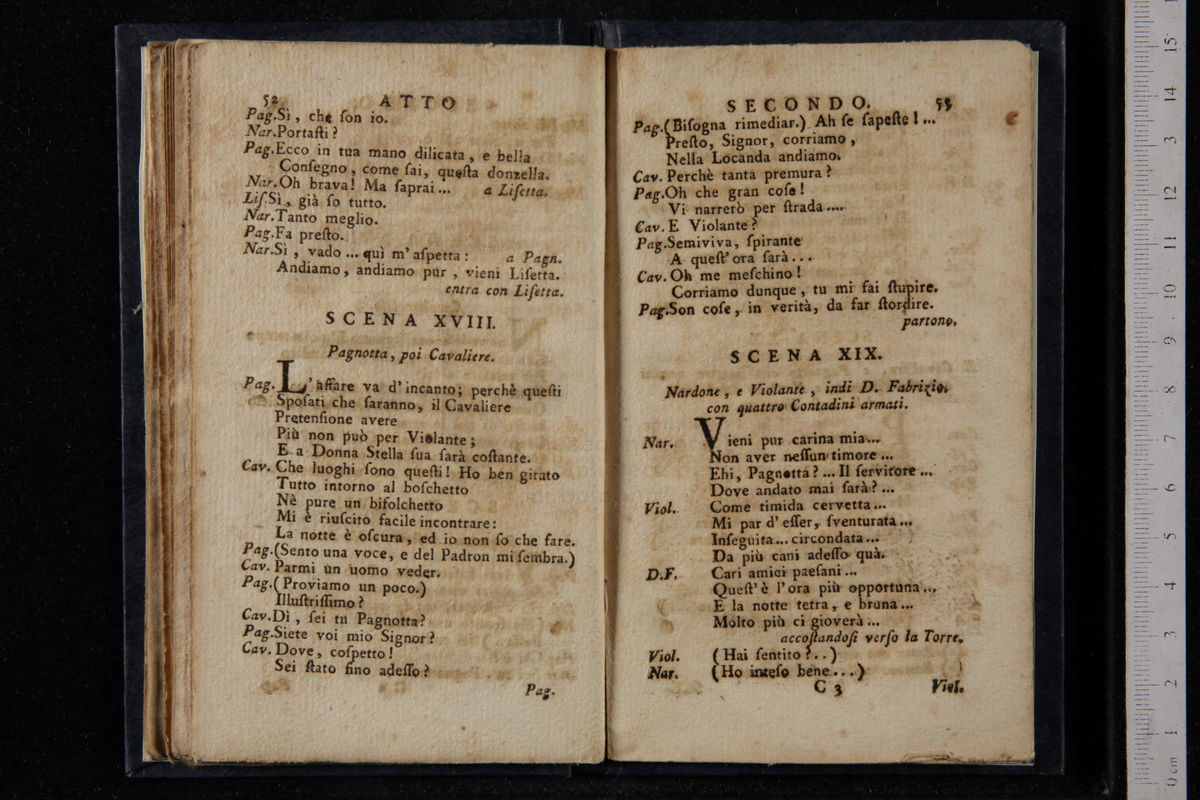 52 ATTO
Pag. Sì, che ſon io.
Nar. Portaſti?
Pag. Ecco in tua mano dilicata, e bella
Conſegno, come ſai, queſta donzella.
Nar. Oh brava! Ma ſaprai... a Liſetta.
Liſ. Sì, già ſo tutto.
Nar. Tanto meglio.
Pag. Fa preſto.
Nar. Sì, vado... quì m'aſpetta: a Pagn.
Andiamo, andiamo pur, vieni Liſetta.
entra con Liſetta.
SCENA XVIII.
Pagnotta, poi Cavaliere.
Pag. L'affare va d'incanto; perchè queſti
Spoſati che ſaranno, il Cavaliere
Pretenſione avere
Più non può per Violante;
E a Donna Stella ſua ſarà coſtante.
Cav. Che luoghi ſono queſti! Ho ben girato
Tutto intorno al boſchetto
Nè pure un bifolchetto
Mi è riuſcito facile incontrare:
La notte è oſcura, ed io non ſo che fare.
Pag. (Sento una voce, e del Padron mi ſembra.)
Cav. Parmi un uomo veder.
Pag. (Proviamo un poco.)
Illuſtriſſimo?
Cav. Dì, ſei tu Pagnotta?
Pag. Siete voi mio Signor?
Cav. Dove, coſpetto!
Sei ſtato ſino adeſſo?
Pag.
SECONDO. 53
Pag. (Biſogna rimediar.) Ah ſe ſapeſte!...
Preſto, Signor, corriamo,
Nella Locanda andiamo.
Cav. Perchè tanta premura?
Pag. Oh che gran coſe!
Vi narrerò per ſtrada....
Cav. E Violante?
Pag. Semiviva, ſpirante
A queſt'ora ſarà...
Cav. Oh me meſchino!
Corriamo dunque, tu mi fai ſtupire.
Pag. Son coſe, in verità, da far ſtordire.
partono.
SCENA XIX.
Nardone, e Violante, indi D. Fabrizio.
con quattro Contadini armati.
Nar. Vieni pur carina mia...
Non aver neſſun timore...
Ehi, Pagnotta?... Il ſervitore...
Dove andato mai ſarà?...
Viol. Come timida cervetta...
Mi par d'eſſer, ſventurata...
Inſeguita... circondata...
Da più cani adeſſo quà.
D.F. Cari amici paeſani...
Queſt'è l'ora più opportuna...
E la notte tetra, e bruna...
Molto più ci gioverà...
accoſtandoſi verſo la Torre.
Viol. (Hai ſentito?..)
Nar. (Ho inteſo bene...)
C 3 Viol.
0 cm 1 2 3 4 5 6 7 8 9 10 11 12 13 14 15